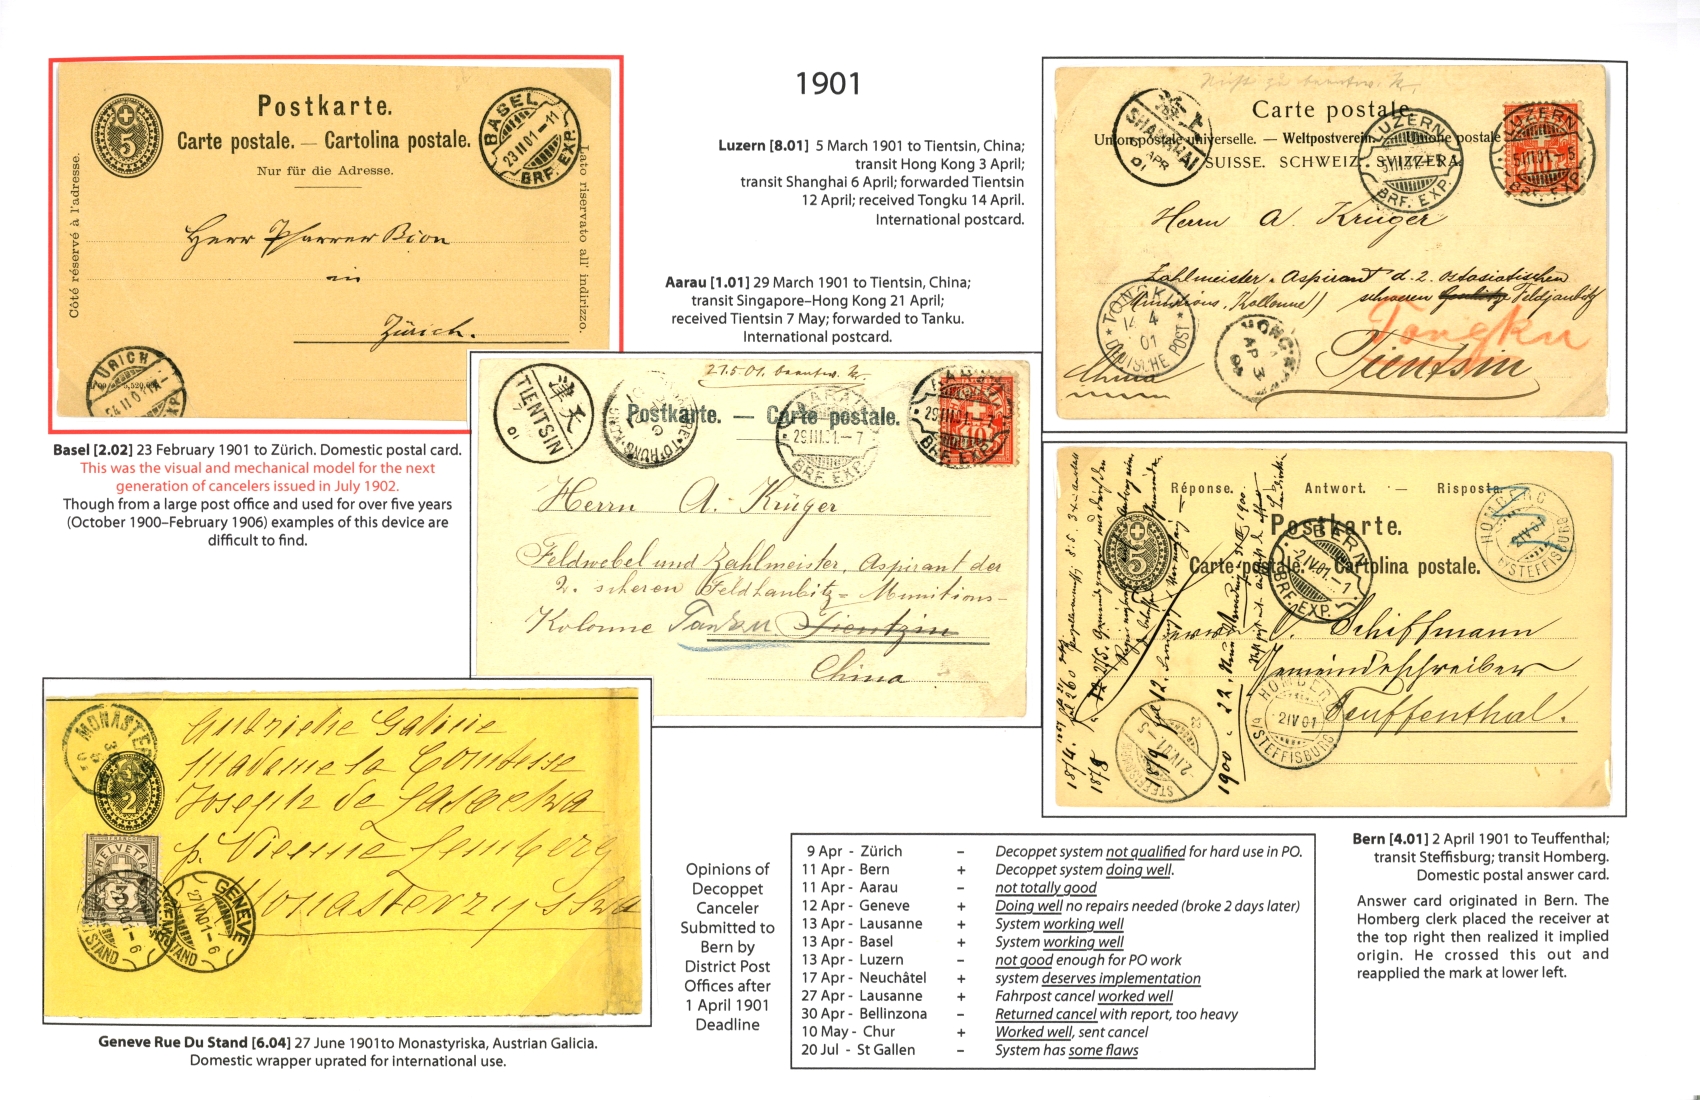 1901
Postkarte.
Carte postale. — Cartolina postale.
Nur für die Adresse.
Côté réservé à l'adresse.
Lato riservato all' indirizzo.
BASEL
23 II 01 – 11
BRF. EXP.
Herr Pfarrer Bion
in
Zürich.
ZÜRICH
Basel [2.02] 23 February 1901 to Zürich. Domestic postal card.
This was the visual and mechanical model for the next
generation of cancelers issued in July 1902.
Though from a large post office and used for over five years
(October 1900–February 1906) examples of this device are
difficult to find.
Luzern [8.01] 5 March 1901 to Tientsin, China;
transit Hong Kong 3 April;
transit Shanghai 6 April; forwarded Tientsin
12 April; received Tongku 14 April.
International postcard.
Aarau [1.01] 29 March 1901 to Tientsin, China;
transit Singapore–Hong Kong 21 April;
received Tientsin 7 May; forwarded to Tanku.
International postcard.
Carte postale
Union postale universelle. — Weltpostverein. — Unione postale
SUISSE. SCHWEIZ. SVIZZERA.
SHANGHAI
APR
01
LUZERN
5 III 01. – 5
BRF. EXP.
LUZERN
5 III 01. – 5
BRF. EXP.
Herrn A. Krüger
Zahlmeister-Aspirant d. 2. ostasiatischen
Munitions, Kollonne schweren Feldhaubitz
Tongku
Tientsin
China
TONGKU
14 4
01
DEUTSCHE POST
HONG K
AP 3
27.5.01.
TIENTSIN
01
Postkarte. — Carte postale.
AARAU
29 III 01. – 7
BRF. EXP.
29 III 01. – 7
BRF. EXP.
Herrn A. Krüger
Feldwebel und Zahlmeister, Aspirant der
2. scheren Feldhaubitz= Munitions-
Kolonne Tanku Tientzin
China
Réponse. Antwort. — Risposta.
Postkarte.
Carte postale. — Cartolina postale.
BERN
2 IV 01. – 1
BRF. EXP.
HOMBERG
b/STEFFISBURG
Schiffmann
Gemeindeschreiber
Teuffenthal.
HOMBERG
2 IV 01
b/STEFFISBURG
2. IV. 01. – 5
1900
MONASTER
Madame la Comtesse
Joseph de
p. Vienne Lemberg
Monasterzyska
FRANCO
HELVETIA
3
GENÈVE
27 VI 01 – 6
STAND
Geneve Rue Du Stand [6.04] 27 June 1901to Monastyriska, Austrian Galicia.
Domestic wrapper uprated for international use.
Opinions of
Decoppet
Canceler
Submitted to
Bern by
District Post
Offices after
1 April 1901
Deadline
9 Apr - Zürich – Decoppet system not qualified for hard use in PO.
11 Apr - Bern + Decoppet system doing well.
11 Apr - Aarau – not totally good
12 Apr - Geneve + Doing well no repairs needed (broke 2 days later)
13 Apr - Lausanne + System working well
13 Apr - Basel + System working well
13 Apr - Luzern – not good enough for PO work
17 Apr - Neuchâtel + system deserves implementation
27 Apr - Lausanne + Fahrpost cancel worked well
30 Apr - Bellinzona – Returned cancel with report, too heavy
10 May - Chur + Worked well, sent cancel
20 Jul - St Gallen – System has some flaws
Bern [4.01] 2 April 1901 to Teuffenthal;
transit Steffisburg; transit Homberg.
Domestic postal answer card.
Answer card originated in Bern. The
Homberg clerk placed the receiver at
the top right then realized it implied
origin. He crossed this out and
reapplied the mark at lower left.